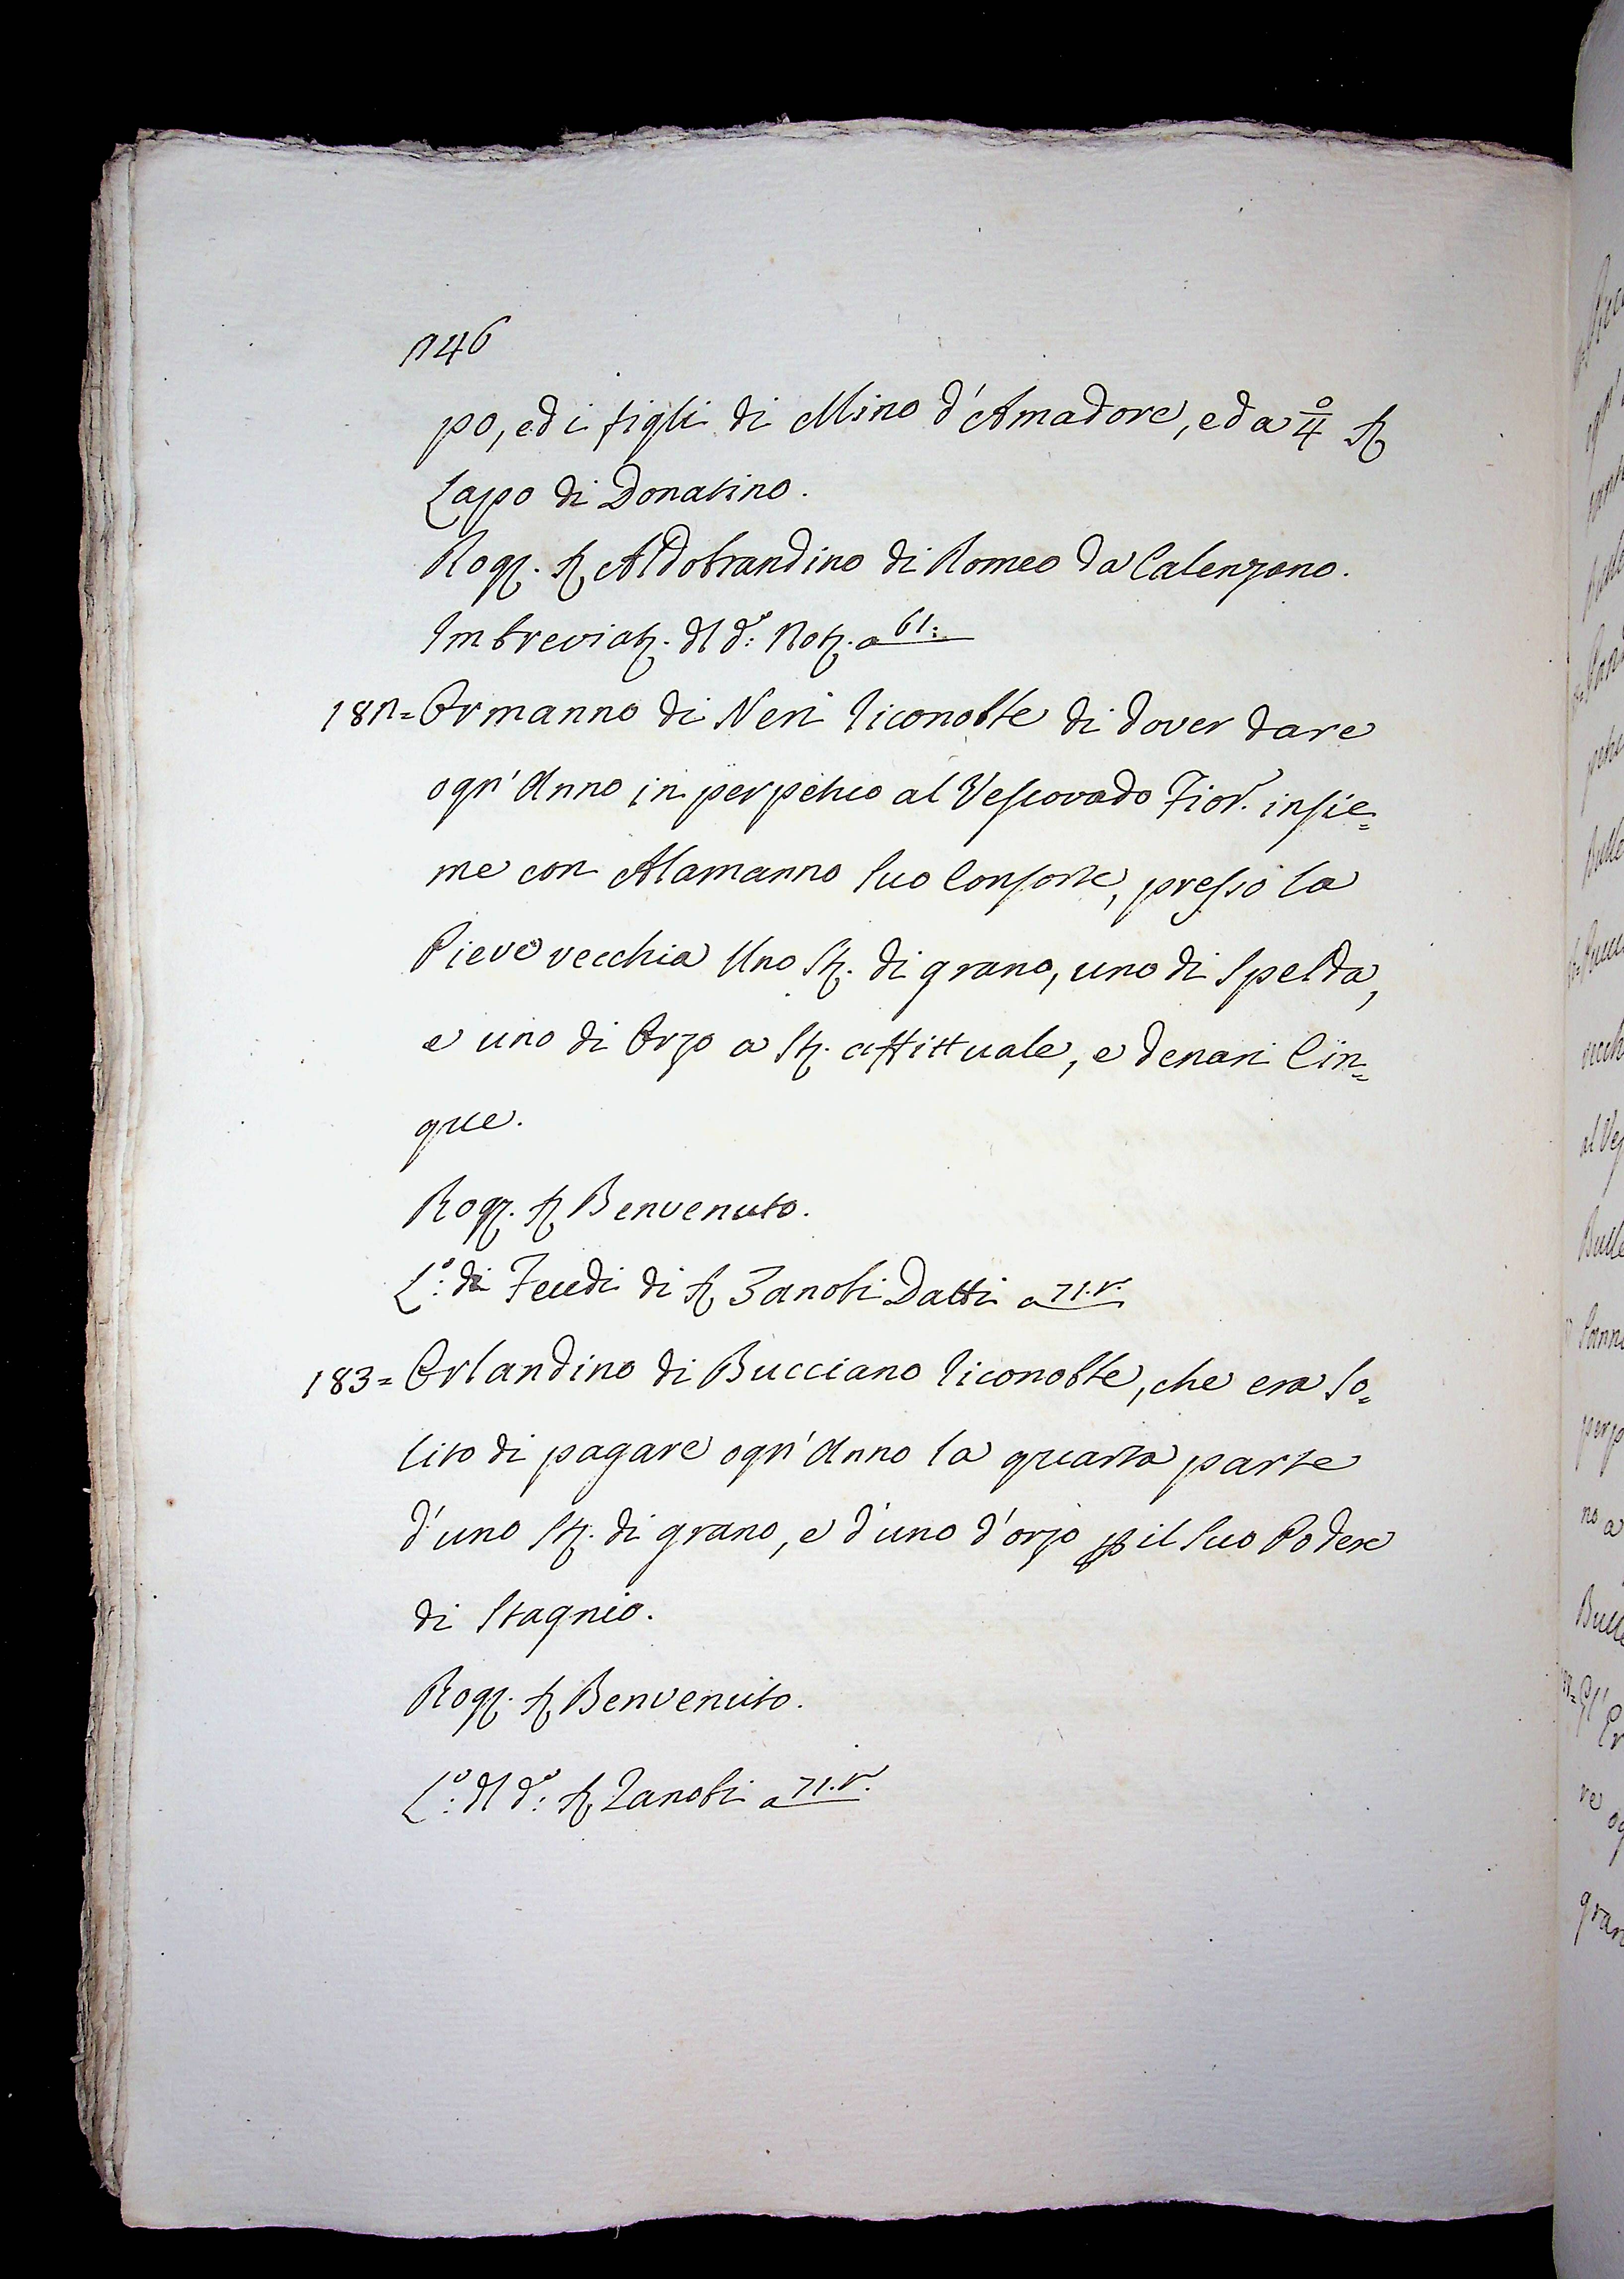 246
po, ed i figli di Mino d'Amadore, ed a 4.º Sʳ
Lapo di Donatino.
Rogʒ. Sʳ Aldobrandino di Romeo da Calenzano.
Imbreviatʒ. dl dº: Notʒ. a 61:
182= Ormanno di Neri riconobbe di dover dare
ogn'Anno in perpetuo al Vescovado Fior. insie=
me con Alamanno suo Consorte, presso la
Pieve vecchia Uno Stʒ. di grano, uno di Spelda,
e uno di Orzo a Stʒ. affittuale, e denari Cin=
que.
Rogʒ. Sʳ Benvenuto.
Lº: di Feudi di Sʳ Zanobi Datti a 71.r.
183= Orlandino di Bucciano riconobbe, che era so=
lito di pagare ogn'Anno la quarta parte
d'uno Stʒ. di grano, e d'uno d'orzo p il suo Podere
di Stagnio.
Rogʒ. Sʳ Benvenuto.
Lº: dl dº: Sʳ Zanobi a 71.r.